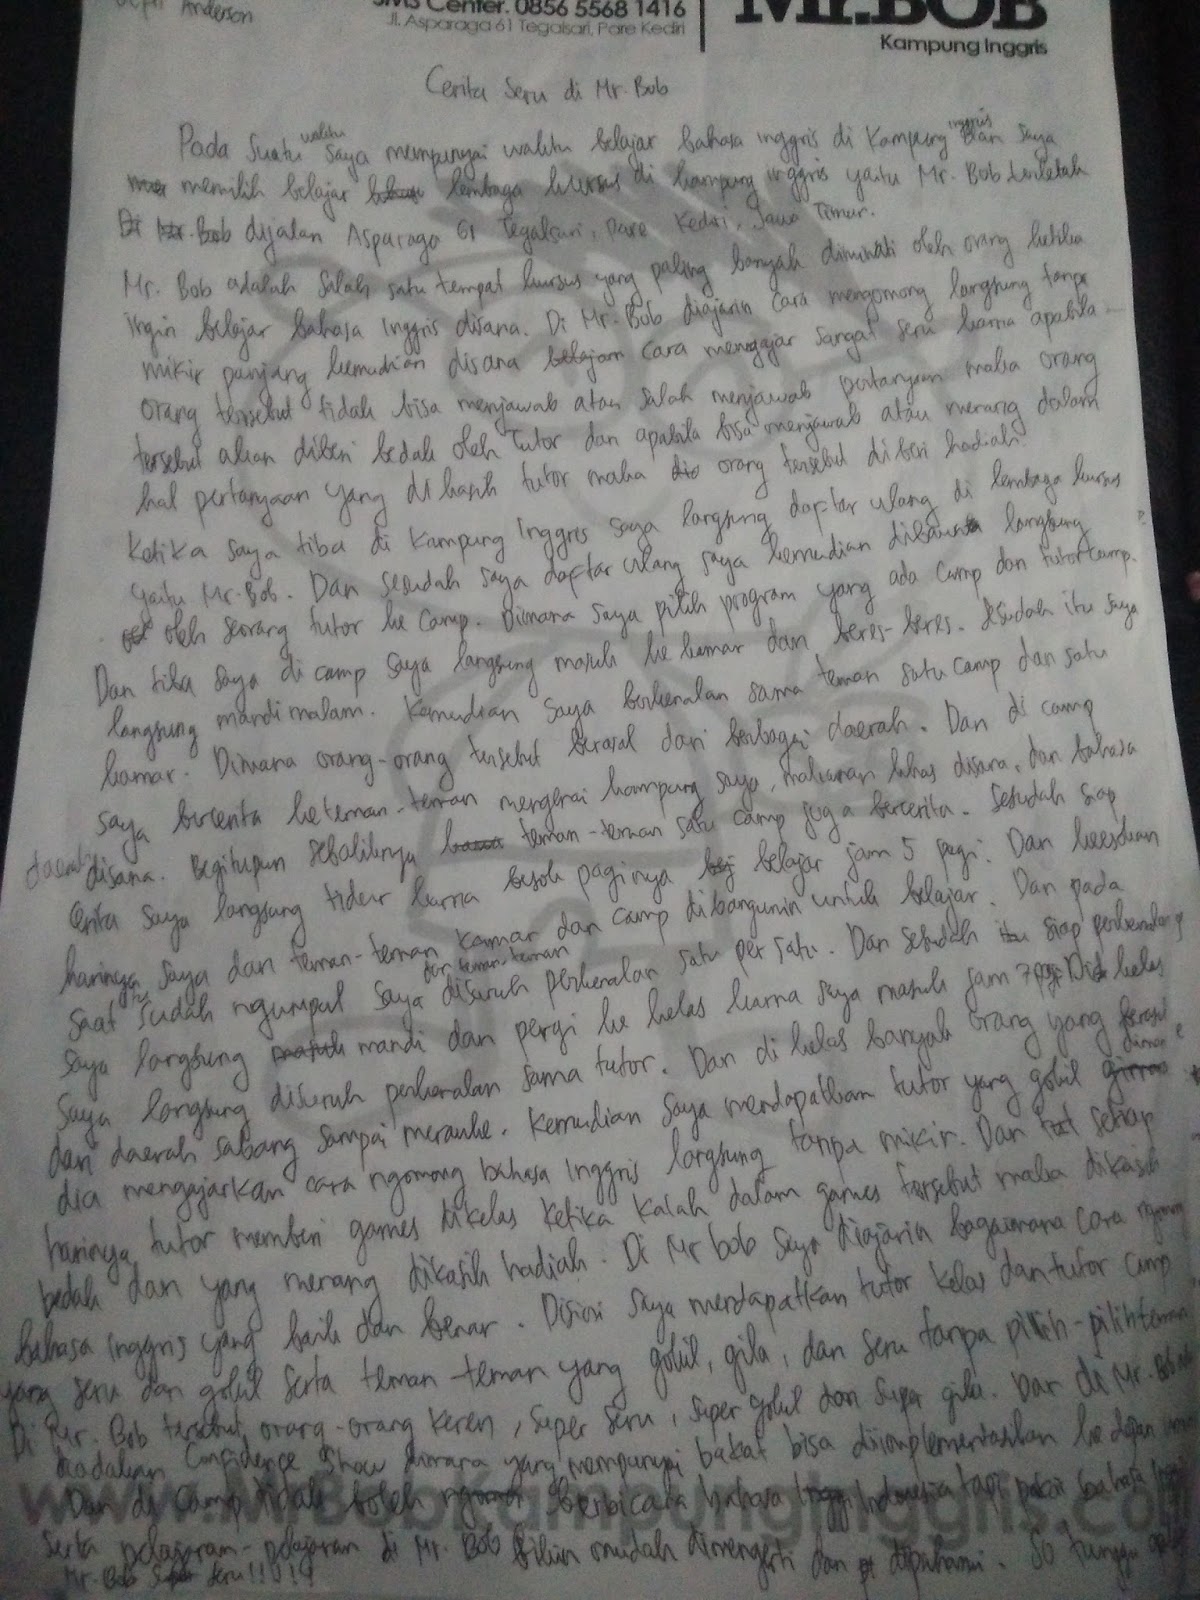 Anderson
SMS Center. 0856 5568 1416
Jl. Asparaga 61 Tegalsari, Pare Kediri
Mr.BOB
Kampung Inggris
Cerita Seru di Mr. Bob
Pada suatu waktu saya mempunyai waktu belajar bahasa inggris di Kampung inggris Dan saya
memilih belajar lembaga kursus di kampung inggris yaitu Mr. Bob terletak
dijalan Asparaga 61 Tegalsari, Pare Kediri, Jawa Timur.
Mr. Bob adalah salah satu tempat kursus yang paling banyak diminati oleh orang ketika
ingin belajar bahasa inggris disana. Di Mr. Bob diajarin cara mengomong langsung tanpa
mikir panjang kemudian disana cara mengajar sangat seru karna apabila
orang tersebut tidak bisa menjawab atau salah menjawab pertanyaan maka orang
tersebut akan diberi bedak oleh tutor dan apabila bisa menjawab atau menang dalam
hal pertanyaan yang di kasih tutor maka orang tersebut diberi hadiah.
Ketika saya tiba di Kampung Inggris saya langsung daftar ulang di lembaga kursus
yaitu Mr. Bob. Dan sesudah saya daftar ulang saya kemudian dibawa langsung
oleh seorang tutor ke camp. Dimana saya pilih program yang ada camp dan tutor camp.
Dan tiba saya di camp saya langsung masuk ke kamar dan beres-beres. Sesudah itu saya
langsung mandi malam. Kemudian saya berkenalan sama teman satu camp dan satu
kamar. Dimana orang-orang tersebut berasal dari berbagai daerah. Dan di camp
saya bercerita ke teman-teman mengenai kampung saya, makanan khas disana, dan bahasa
daerah disana. Begitupun sebaliknya teman-teman satu camp juga bercerita. Sesudah siap
cerita saya langsung tidur karna besok paginya belajar jam 5 pagi. Dan keesokan
harinya saya dan teman-teman kamar dan camp dibangunin untuk belajar. Dan pada
saat itu sudah ngumpul saya dan teman-teman disuruh perkenalan satu per satu. Dan sesudah siap perkenalan
saya langsung mandi dan pergi ke kelas karna saya masuk jam 7 pagi. Di kelas
saya langsung disuruh perkenalan sama tutor. Dan di kelas banyak orang yang berasal
dari daerah sabang sampai merauke. Kemudian saya mendapatkan tutor yang gokil dimana
dia mengajarkan cara ngomong bahasa inggris langsung tanpa mikir. Dan setiap
harinya tutor memberi games dikelas ketika kalah dalam games tersebut maka dikasih
bedak dan yang menang dikasih hadiah. Di Mr bob saya diajarin bagaimana cara ngomong
bahasa inggris yang baik dan benar. Disini saya mendapatkan tutor kelas dan tutor camp
yang seru dan gokil serta teman-teman yang gokil, gila, dan seru tanpa pilih-pilih teman
Di Mr. Bob tersebut orang-orang keren, super seru, super gokil dan super gila. Dan di Mr. Bob
diadakan Confidence Show dimana yang mempunyai bakat bisa diimplementasikan ke depan
Dan di camp tidak boleh berbicara bahasa Indonesia tapi pakai bahasa
www.MrBobKampungInggris.co
serta pelajaran-pelajaran di Mr. Bob mudah dimengerti dan dipahami. So tunggu
Mr. Bob seru!!!!!